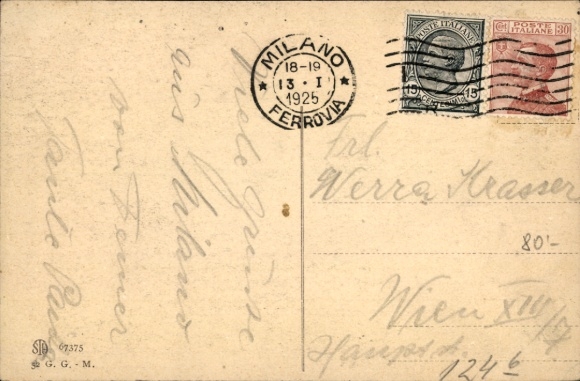 Viele Grüsse
aus Milano
von Deiner
Tante
MILANO
18-19
13 · I
1925
FERROVIA
POSTE ITALIANE
15 15
POSTE ITALIANE 30
Frl.
Werra Krasser
80'-
Wien XIII
124 6
67375
G. G. - M.